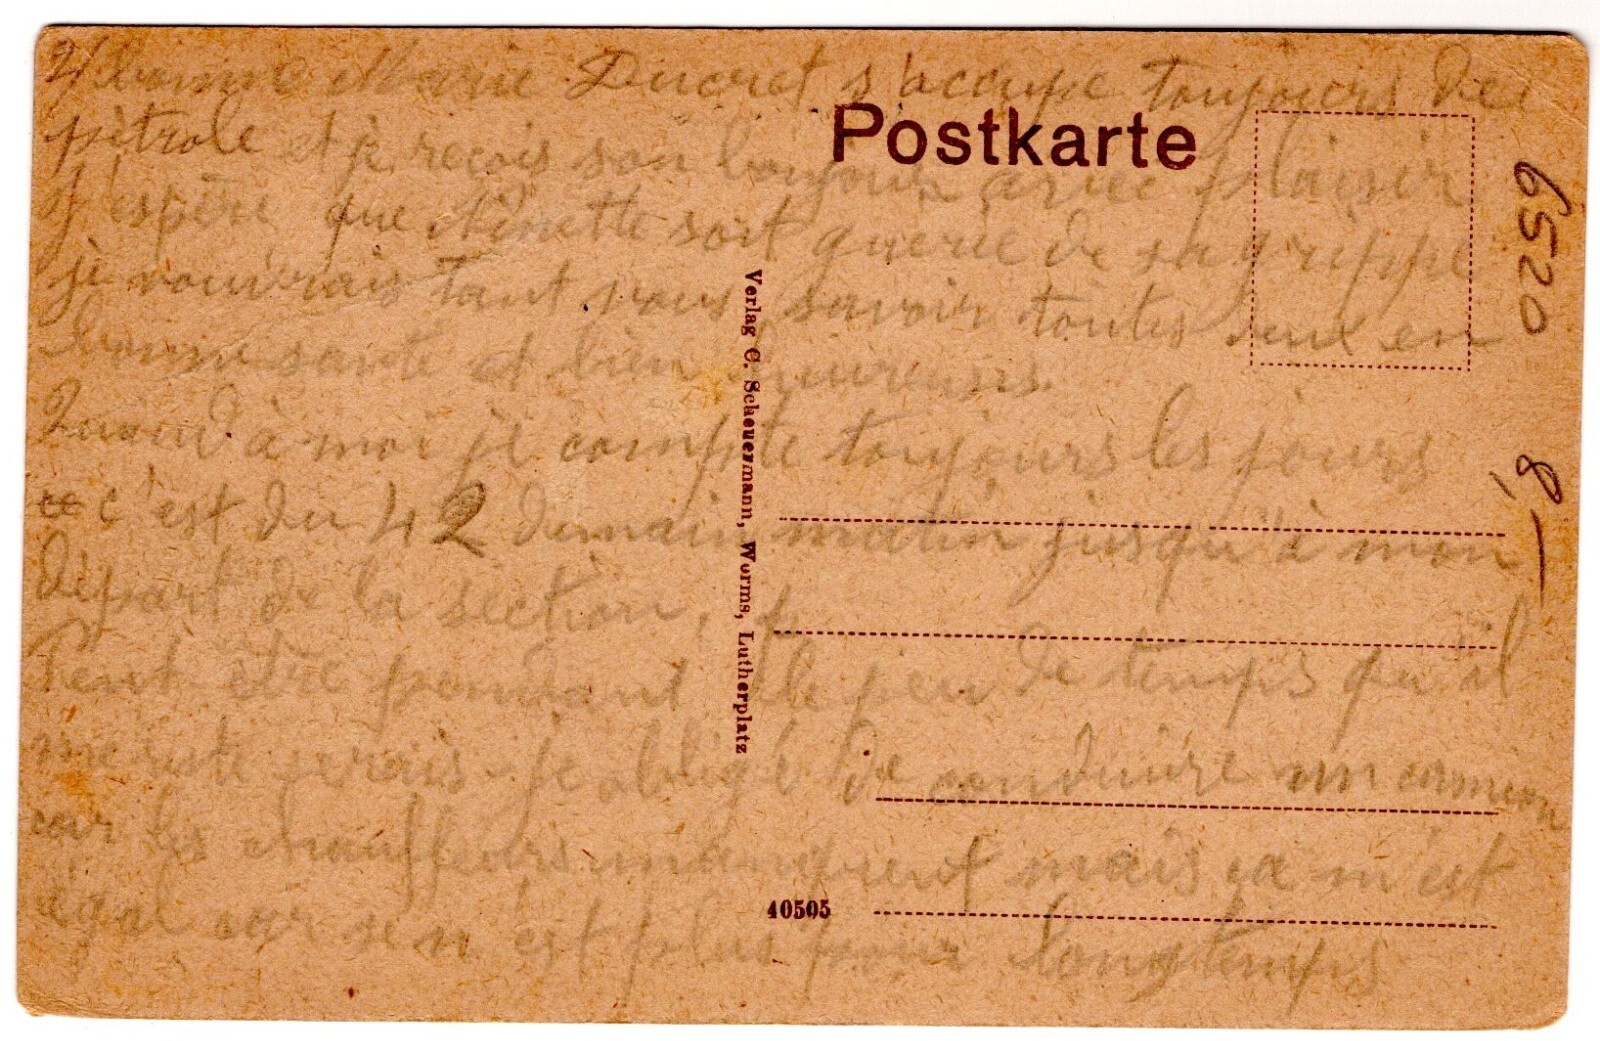 2/ bonne Marie Ducret s'accupe toujours des
pétrole et je reçois son bonjour avec plaisir
J'espère que Ninette soit guerie de sa grippe
je voudrais tant vous savoir toutes deux en
bonne santé et bien heureuses.
Quand à moi je compte toujours les jours
c'est du 42 demain matin jusqu'à mon
départ de la section,
Peut être pendant le peu de temps qu'il
me reste serais-je obligé de conduire un camion
car les chauffeurs manquent mais ça m'est
égal car se n'est plus pour longtemps
Postkarte
Verlag C. Scheuermann, Worms, Lutherplatz
40505
6520
8,—